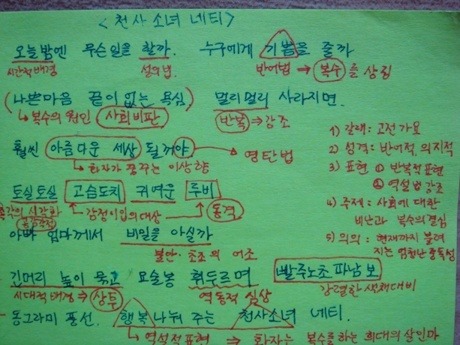 <천사소녀 네티>
오늘밤엔 무슨일을 할까. 누구에게 기쁨을 줄까
시간적배경 설의법 반어법 → 복수를 상징
(나쁜마음 끝이없는 욕심) 멀리멀리 사라지면.
↳ 복수의 원인 사회비판 반복 → 강조
훨씬 아름다운 세상 될꺼야 → 영탄법
↳ 화자가 꿈꾸는 이상향
도실도실 고슴도치 귀여운 루비
감정이입의대상 → 동격
아빠 엄마께서 비밀을 아실까
불안·초조의 어조
긴머리 높이 묶고 요술봉 휘두르며 빨주노초파남보
시대적배경 → 상투 역동적 심상 강렬한 색채대비
동그라미 풍선. 행복 나눠 주는 천사소녀 네티.
↳ 역설적표현 ⇒ 화자는 복수를하는 희대의 살인마
1) 갈래 : 고전가요
2) 성격 : 반어적, 의지적
3) 표현 ① 반복적표현
② 역설법 강조
4) 주제 : 사회에 대한
비난과 복수의 결심
5) 의의 : 현재까지 불려
지는 엄청난 중독성